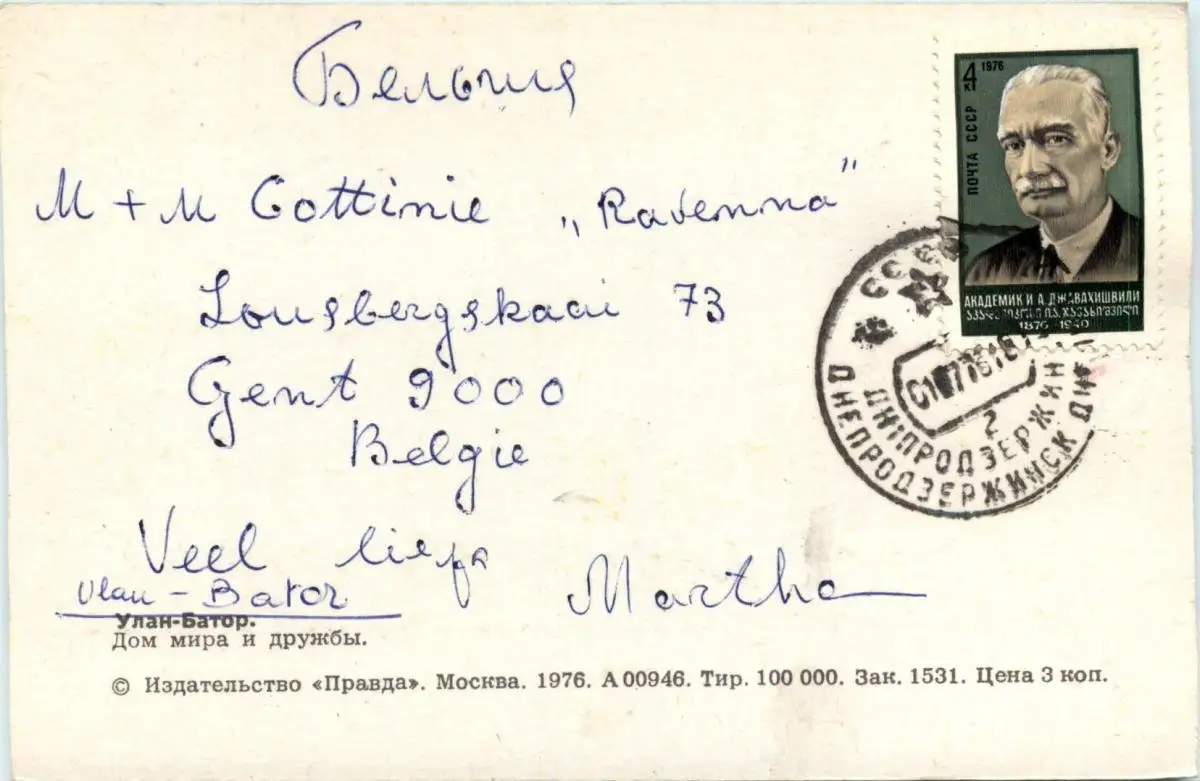 Бельгия
M + M Gottinie „Ravenna”
Lousbergskaai 73
Gent 9000
Belgie
Veel liefs
Martha
Ulan-Bator
Улан-Батор.
Дом мира и дружбы.
© Издательство «Правда». Москва. 1976. А 00946. Тир. 100 000. Зак. 1531. Цена 3 коп.
4 к 1976
ПОЧТА СССР
АКАДЕМИК И. А. ДЖАВАХИШВИЛИ
1876-1940
СССР
ДНЕПРОДЗЕРЖИНСК
ДНІПРОДЗЕРЖИН
2